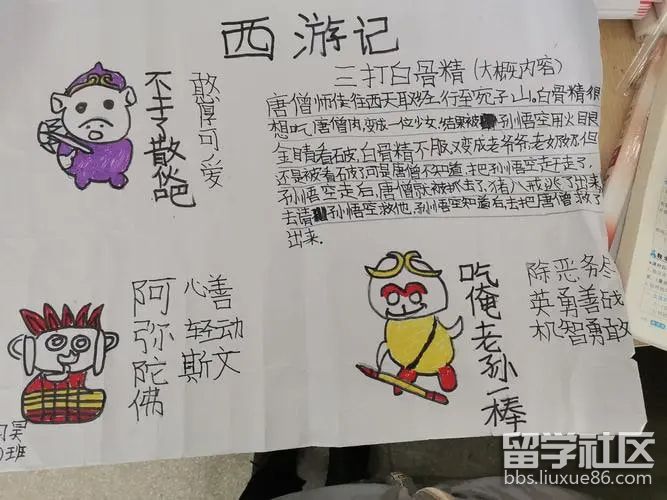 西游记
三打白骨精(大概内容)
唐僧师徒往西天取经,行至宛子山。白骨精很
想吃,唐僧肉,变成一位少女,结果被孙悟空用火目艮
金睛看石皮,白骨精不服又变成老爷爷,老奶奶但
还是被看石皮了可是唐僧不知道,把孙悟空赶走了,
孙悟空走后,唐僧就被抓去了,猪八戒逃了出来,
去请孙悟空救他,孙悟空知道后去把唐僧救了
出来.
不走了散伙吧
憨厚可爱
阿弥陀佛
心善
轻动
斯文
吃俺老孙一棒
除恶务尽
英勇善战
机智勇敢
昊
班
留学社区
bbs.liuxue86.com